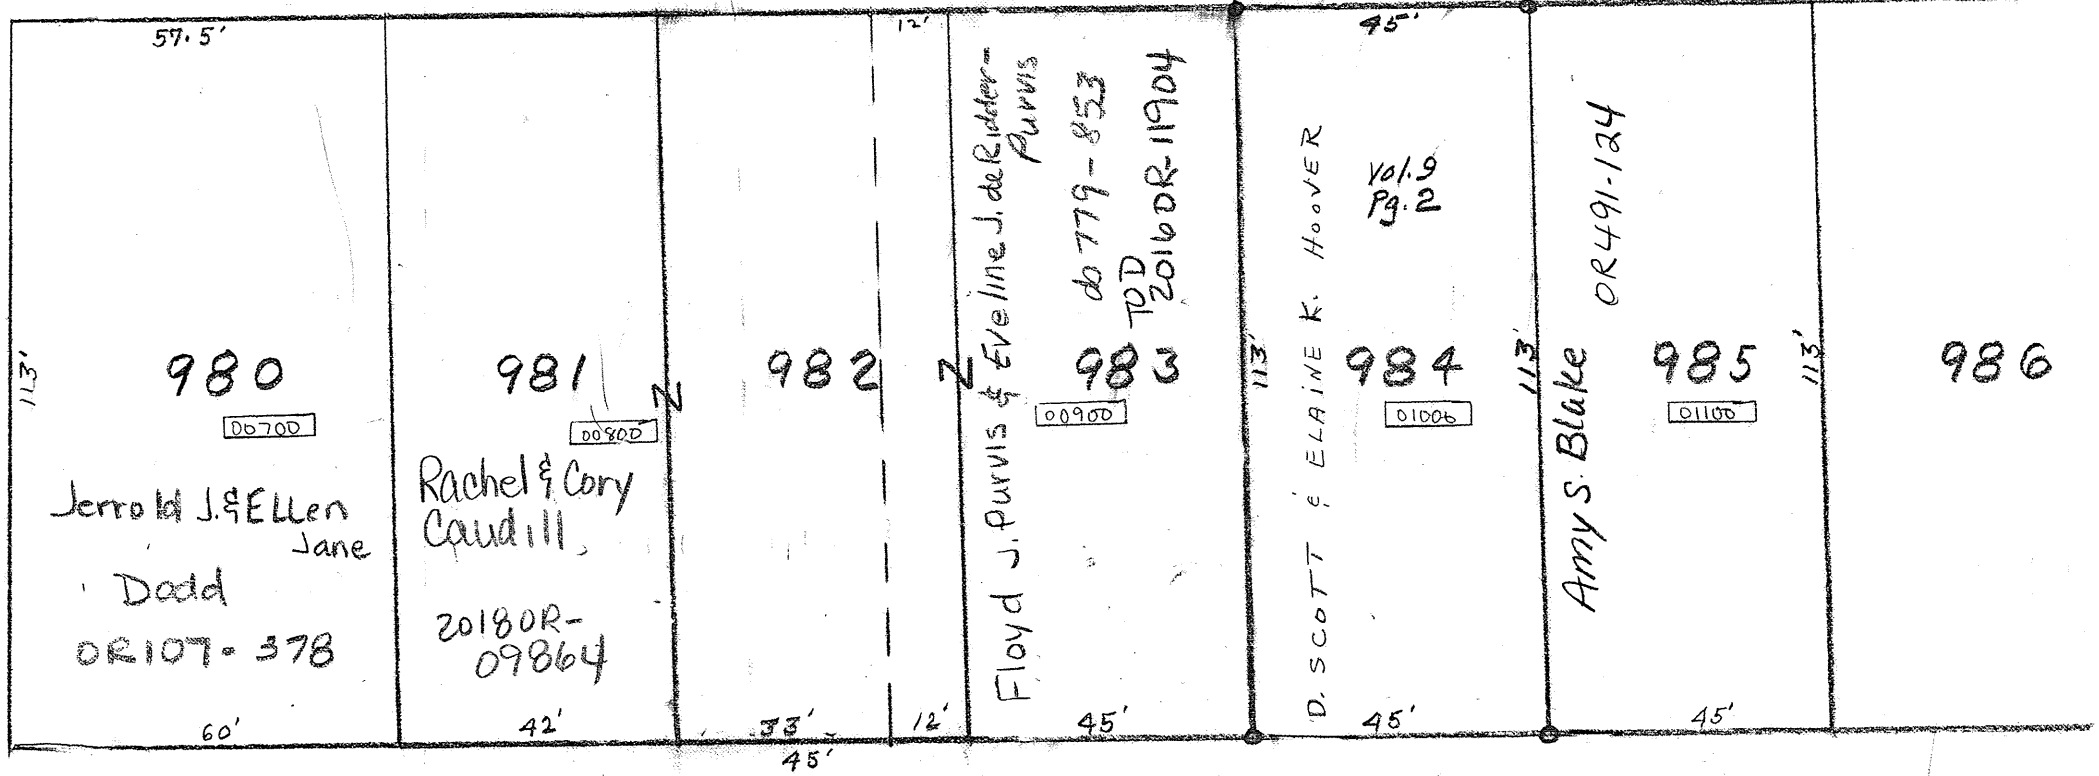 57.5'
12'
45'
113'
980
00700
Jerrold J. & Ellen
Jane
Dodd
OR107-378
60'
981
00800
Rachel & Cory
Caudill
2018OR-
09864
42'
Z
982
33'
12'
45'
Z
Floyd J. Purvis & Eveline J. deRidder-
Purvis
do 779-853
TOD
2016OR-11904
983
00900
45'
113'
D. SCOTT & ELAINE K. HOOVER
Vol. 9
Pg. 2
984
01000
45'
113'
Amy S. Blake OR491-124
985
01100
45'
113'
986